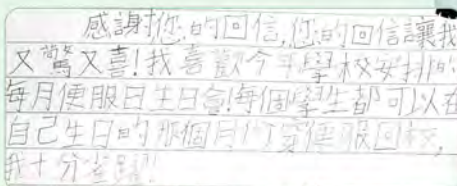 感謝您的回信,您的回信讓我
又驚又喜!我喜歡今年學校安排的
每月便服日生日會!每個學生都可以在
自己生日的那個月份穿便服回校,
我十分雀躍!